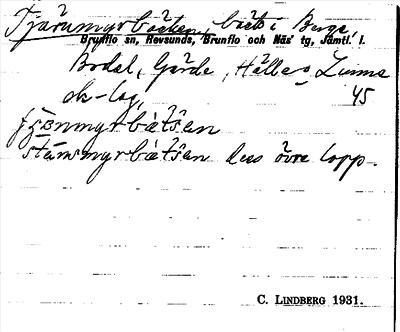 Tjärnmyrbäcken, bäck i Berge,
Brunflo sn, Revsunds, Brunflo och Näs' tg, Jämtl. l.
Bodal, Gärde, Hälle o Lunne
sk-lag, 45
stámsmyrbätšen dess övre lopp.
C. LINDBERG 1931.